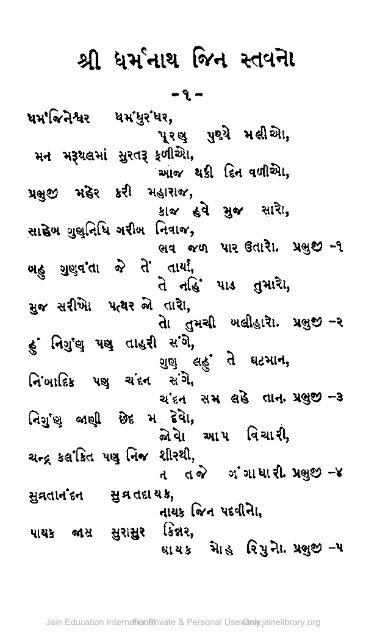 શ્રી ધર્મનાથ જિન સ્તવનો
-૧-
ધર્મજિનેશ્વર ધર્મધુરંધર,
પૂરણ પુણ્યે મલીઓ,
મન મરૂથલમાં સુરતરૂ ફળીઓ,
આજ થકી દિન વળીઓ,
પ્રભુજી મહેર કરી મહારાજ,
કાજ હવે મુજ સારો,
સાહેબ ગુણનિધિ ગરીબ નિવાજ,
ભવ જળ પાર ઉતારો. પ્રભુજી -૧
બહુ ગુણવંતા જે તેં તાર્યા,
તે નહિં પાડ તુમારો,
મુજ સરીખો પત્થર જો તારો,
તો તુમચી બલીહારો. પ્રભુજી -૨
હું નિર્ગુણ પણ તાહરી સંગે,
ગુણ લહું તે ઘટમાન,
નિંબાદિક પણ ચંદન સંગે,
ચંદન સમ લહે તાન. પ્રભુજી -૩
નિર્ગુણ જાણી છેહ મ દેવો,
જોવો આપ વિચારી,
ચન્દ્ર કલંકિત પણ નિજ શીરથી,
ન તજે ગંગાધારી. પ્રભુજી -૪
સુવ્રતાનંદન સુવ્રતદાયક,
નાયક જિન પદવીનો,
પાયક જાસ સુરાસુર કિન્નર,
ઘાયક મોહ રિપુનો. પ્રભુજી -૫
Jain Education International For Private & Personal Use Only www.jainelibrary.org